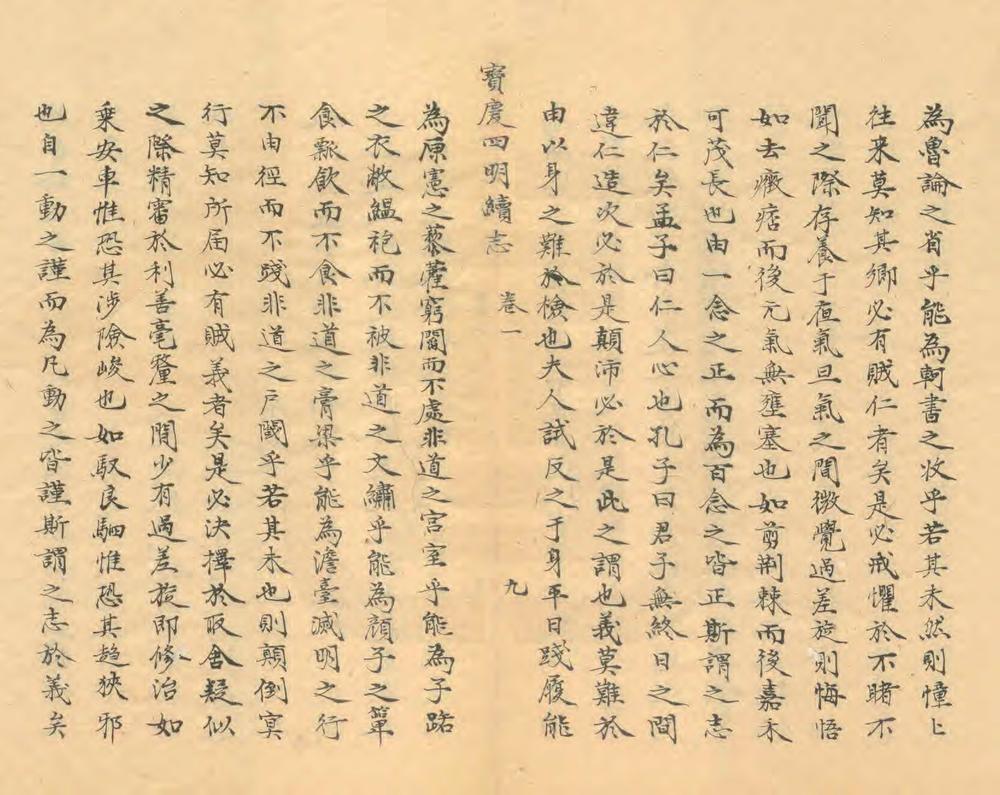 為魯論之省乎能為軻書之收乎若其未然則憧〻
往来莫知其鄉必有賊仁者矣是必戒懼於不睹不
聞之際存養于夜氣旦氣之間微覺過差旋則悔悟
如去癥痞而後元氣無壅塞也如剪荆棘而後嘉禾
可茂長也由一念之正而為百念之皆正斯謂之志
於仁矣孟子曰仁人心也孔子曰君子無終日之間
違仁造次必於是顛沛必於是此之謂也義莫難於
由以身之難於檢也夫人試反之于身平日踐履能
寶慶四明續志 卷一 九
為原憲之藜藿窮閻而不處非道之宮室乎能為子路
之衣敝緼袍而不被非道之文繡乎能為顔子之簞
食瓢飲而不食非道之膏梁乎能為澹臺滅明之行
不由徑而不踐非道之戶閾乎若其未也則顛倒冥
行莫知所届必有賊義者矣是必決擇於取舍疑似
之際精審於利善毫釐之間少有過差旋即修治如
乗安車惟恐其涉險峻也如馭良駟惟恐其趋狹邪
也自一動之謹而為凡動之皆謹斯謂之志於義矣